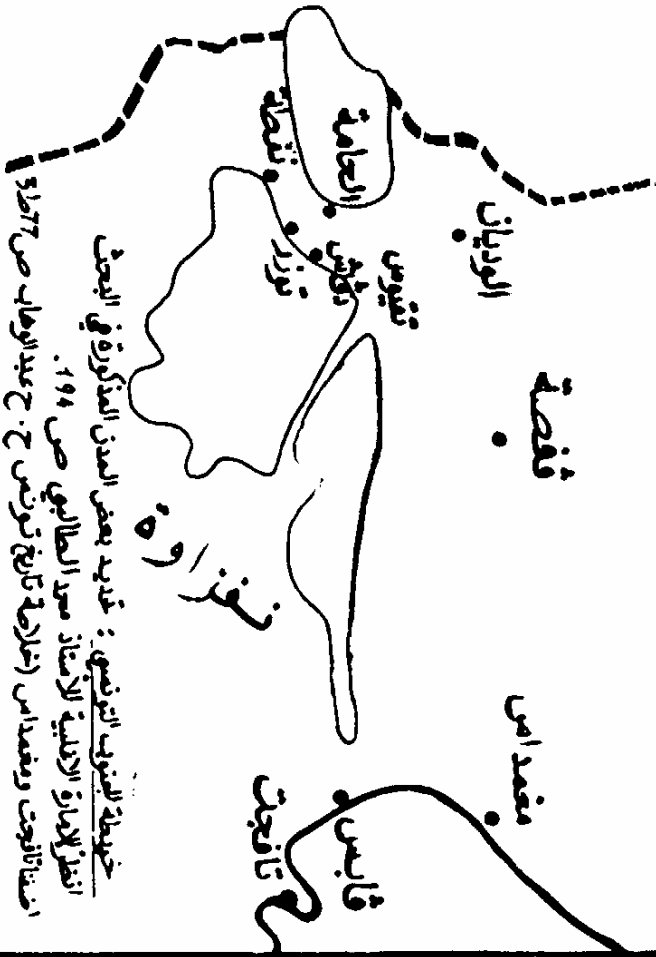 نفطة
الحامة
توزر
دقاش
تقيوس
الوديان
قفصة
نفزاوة
مغمداس
قابس
تافجت
خريطة الجنوب التونسي : تحديد بعض المدن المذكورة في البحث
انظر الامارة الاغلبية للأستاذ محمد الطالبي ص 194.
اضفنا تافجت ومغمداس (خلاصة تاريخ تونس ح.ح عبد الوهاب ص 77